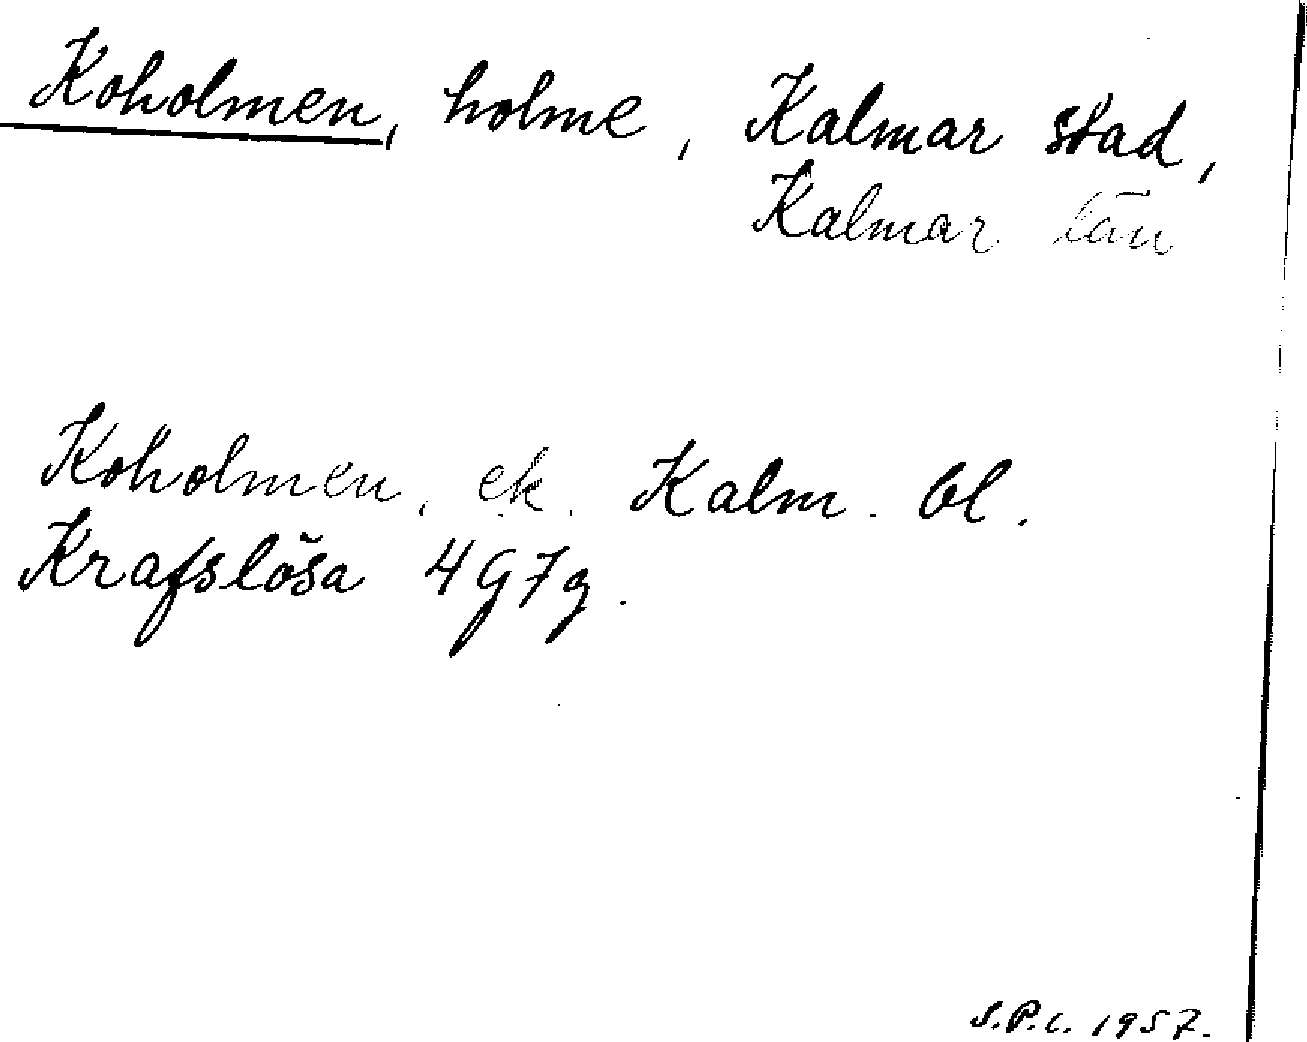 Koholmen, holme, Kalmar stad,
Kalmar län
Koholmen, ek. Kalm. bl.
Krafslösa 4G7g.
S.P.c. 1957.